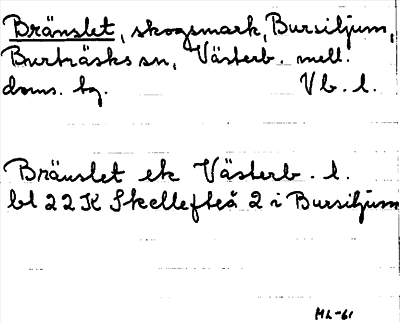 Bränslet, skogsmark, Bursiljum,
Burträsks sn, Västerb. mell.
doms. hg. Vb. l.
Bränslet ek Västerb. l.
bl 22 K Skellefteå 2 i Bursiljum
HL-61